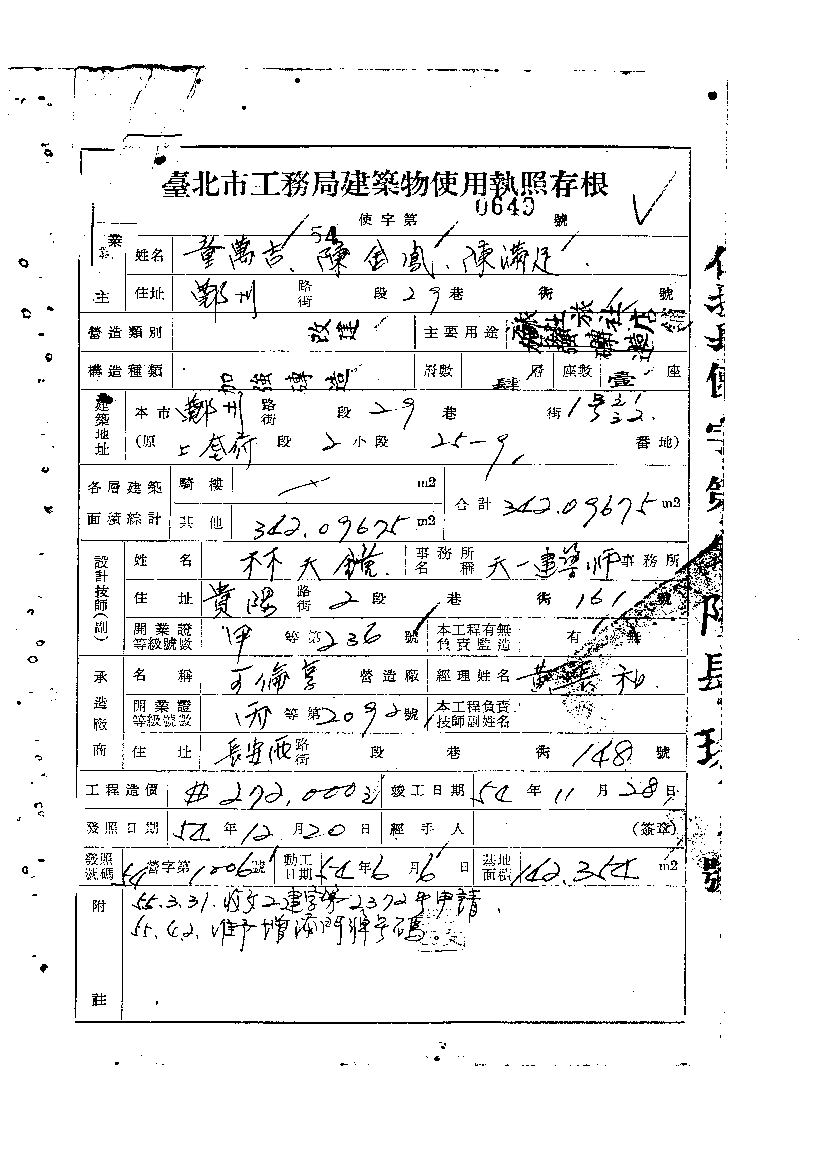 臺北市工務局建築物使用執照存根
54 使字第 0640 號
業主 姓名 童萬吉、陳金鳳、陳滿足
住址 鄭州路街 段 29 巷 街 號
營造類別 改建 主要用途 店鋪
構造種類 加強磚造 層數 肆 層 座數 壹 座
建築地址 本市 鄭州路街 段 29 巷 街 1號
(原 上奎府 段 2 小段 25-9 番地)
各層建築面積綜計 騎樓 m2 合計 342.09675 m2
其他 342.09675 m2
設計技師(副) 姓名 林天鐘 事務所名稱 天一建築師事務所
住址 貴陽路街 2 段 巷 街 161 號
開業證等級號數 甲 等第 236 號 本工程有無負責監造 有
承造廠商 名稱 營造廠 經理姓名
開業證等級號數 丙 等第 2092 號 本工程負責技師副姓名
住址 長安西路街 段 巷 街 148 號
工程造價 #272,000 竣工日期 54 年 11 月 28 日
發照日期 54 年 12 月 20 日 經手人 (簽章)
發照號碼 54 營字第 1206 號 動工日期 54 年 6 月 6 日 基地面積 142.354 m2
附註 55.3.31. 收文2建字第2372申請
55.4.2. 准予增添門牌號碼